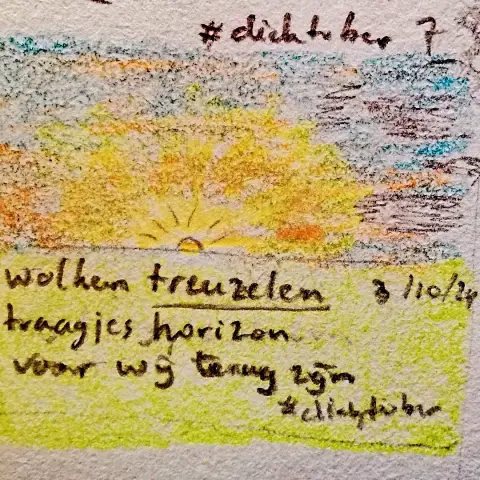 #dichtober 7
wolken treuzelen 3/10/24
traagjes horizon
voor wij terug zijn
#dichtober